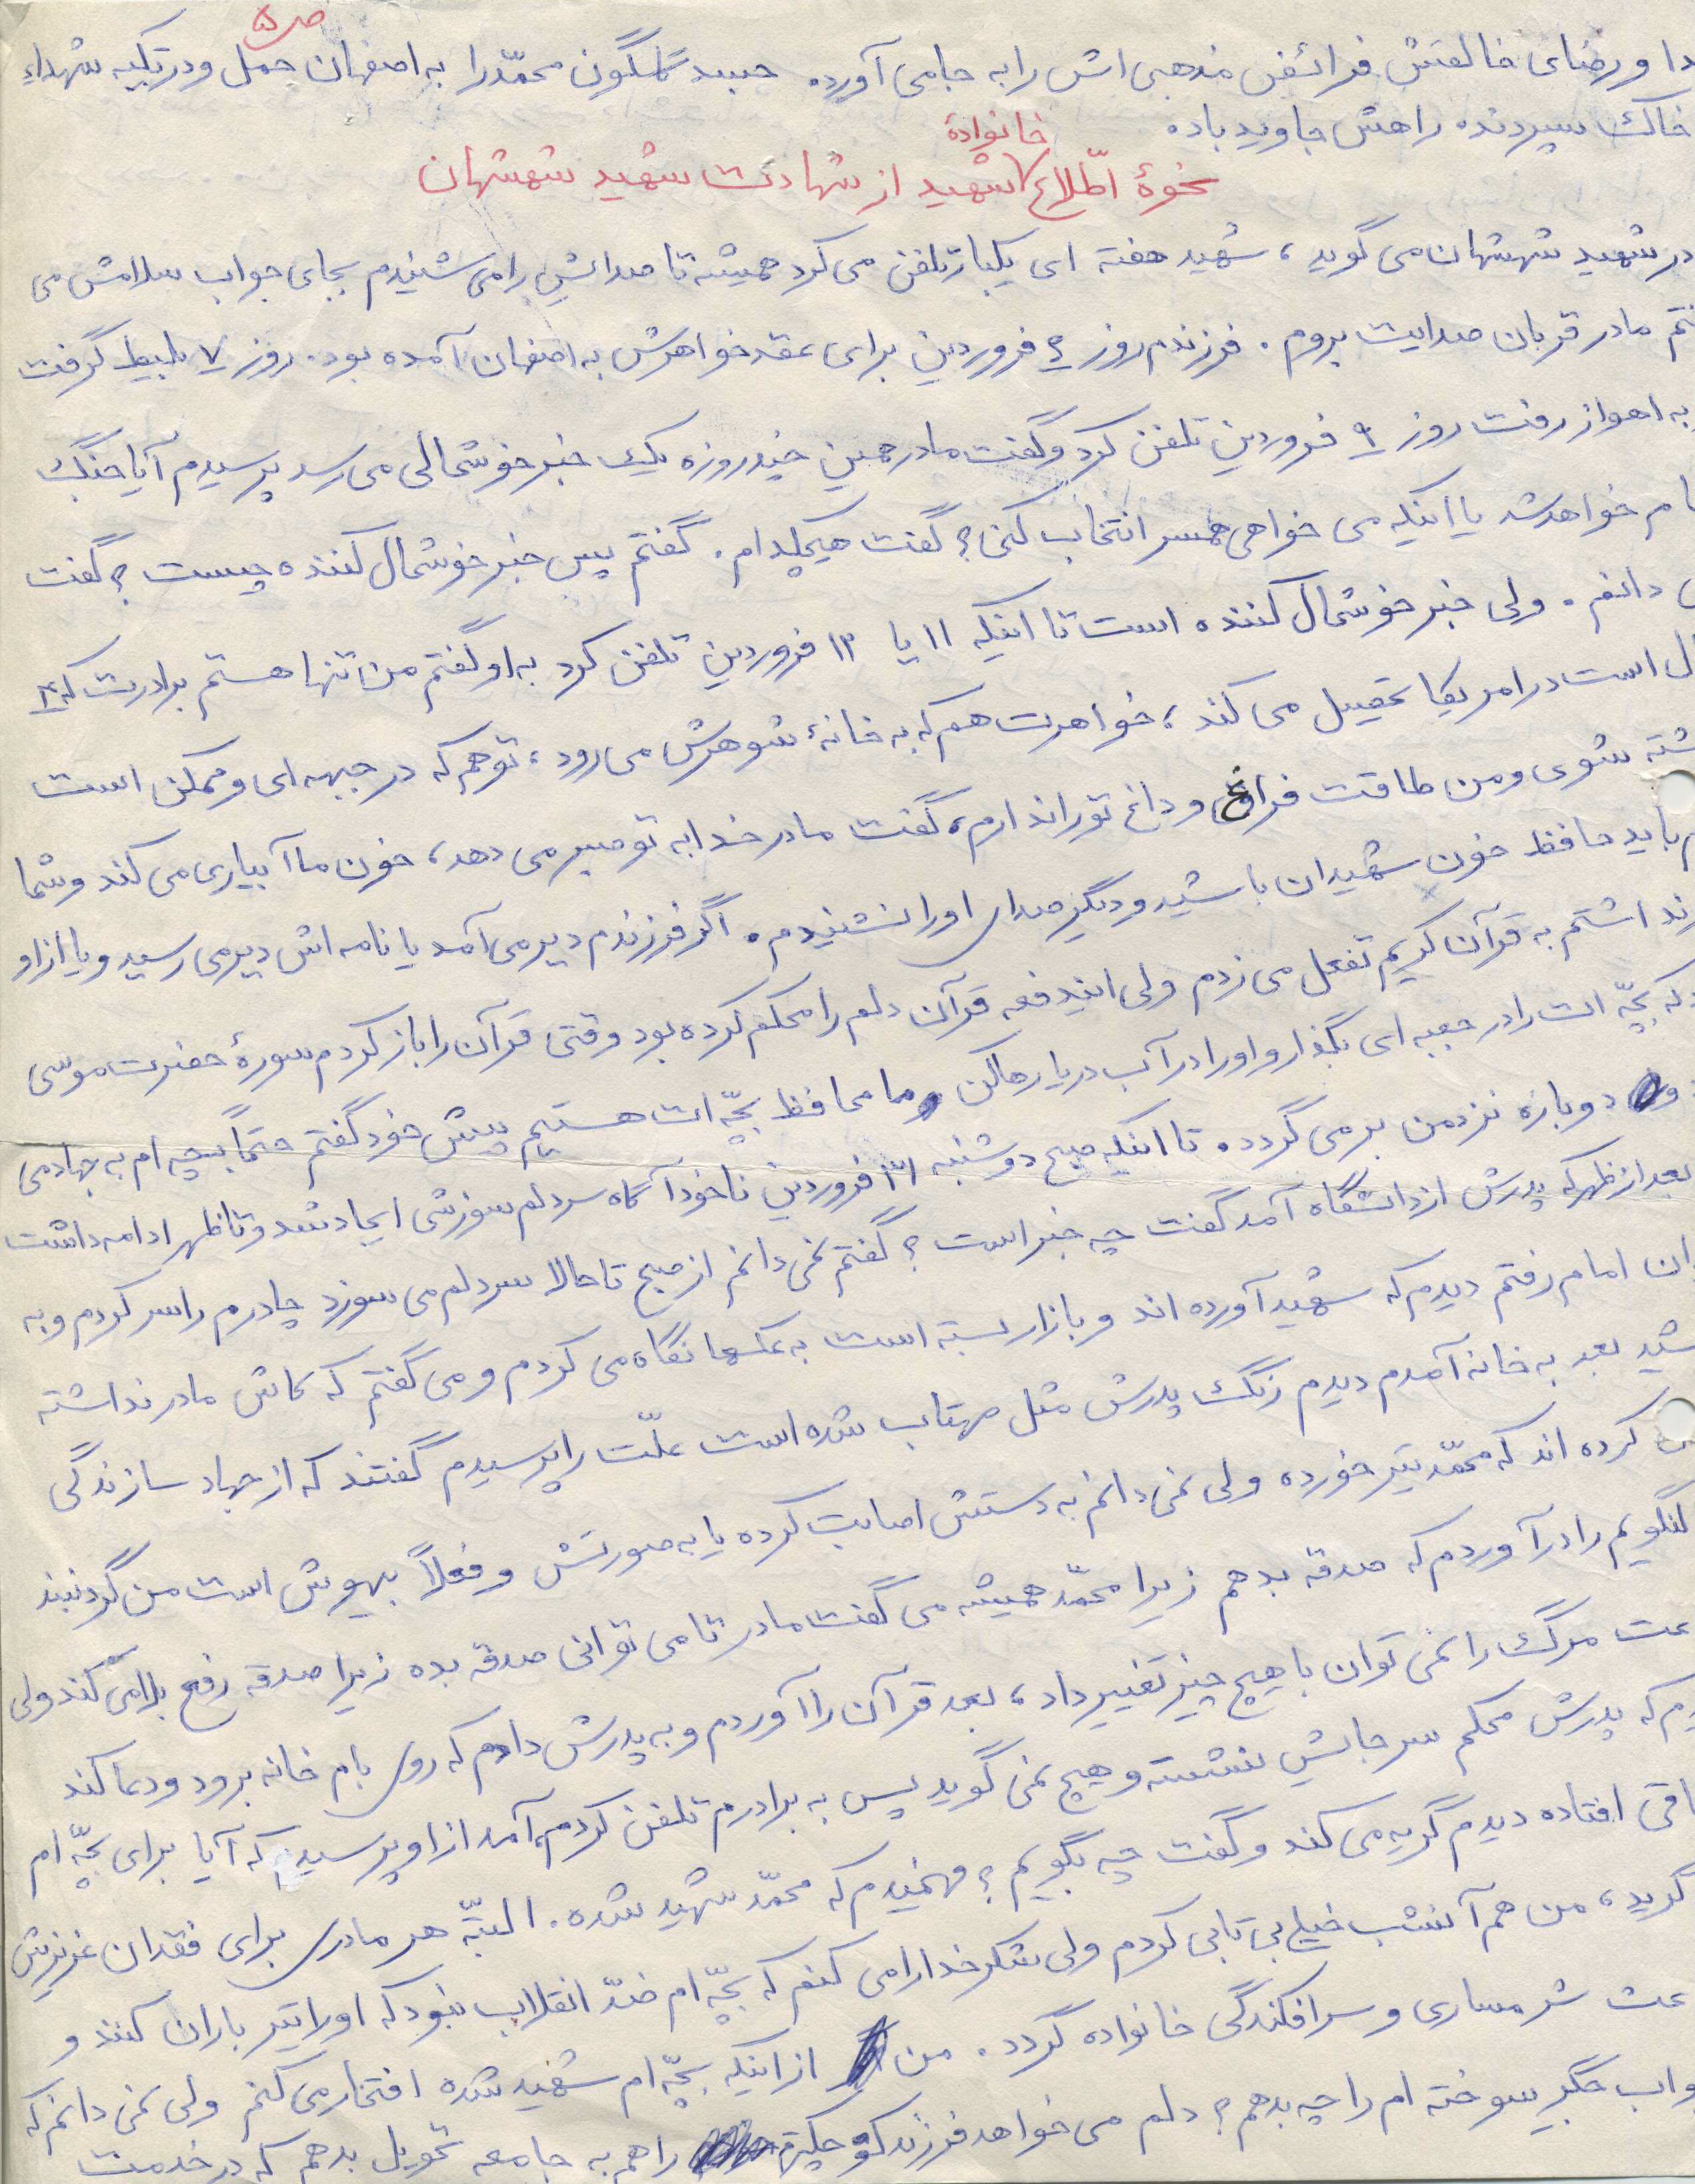 ص ۵
دا و رضای خالقش فرائض مذهبی اش را به جا می آورد. جسد گلگون محمّد را به اصفهان حمل و در تکیه شهداء
خاک سپردند. راهش جاوید باد.
خانوادۀ
نحوۀ اطّلاع شهید از شهادت شهید شهشهان
در شهید شهشهان می گوید، شهید هفته ای یکبار تلفن می کرد همیشه تا صدایش را می شنیدم بجای جواب سلامش می
تم مادر قربان صدایت بروم. فرزندم روز ۴ فروردین برای عقد خواهرش به اصفهان آمده بود. روز ۷ بلیط گرفت
به اهواز رفت روز ۹ فروردین تلفن کرد و گفت مادر همین چند روزه یک خبر خوشحالی می رسد پرسیدم آیا جنگ
ام خواهد شد یا اینکه می خواهی همسر انتخاب کنی؟ گفت هیچکدام. گفتم پس خبر خوشحال کننده چیست؟ گفت
دانم. ولی خبر خوشحال کننده است تا اینکه ۱۱ یا ۱۲ فروردین تلفن کرد به او گفتم من تنها هستم برادرت که ۴
ل است در امریکا تحصیل می کند، خواهرت هم که به خانۀ شوهرش می رود، تو هم که در جبهه ای و ممکن است
شته شوی و من طاقت فراغ و داغ تو را ندارم، گفت مادر خدا به تو صبر می دهد، خون ما آبیاری می کند و شما
م باید حافظ خون شهیدان باشید و دیگر صدای او را نشنیدم. اگر فرزندم دیر می آمد یا نامه اش دیر می رسید و یا از او
ر نداشتم به قرآن کریم تفعل می زدم ولی ایندفعه قرآن دلم را محکم کرده بود وقتی قرآن را باز کردم سورۀ حضرت موسی
د که بچّه ات را در جعبه ای بگذار و او را در آب دریا رها کن و ما محافظ بچّه ات هستیم پیش خود گفتم حتماً بچه ام به جهاد می
و دوباره نزد من بر می گردد. تا اینکه صبح دوشنبه ۳۱ فروردین ناخودآگاه سر دلم سوزشی ایجاد شد و تا ظهر ادامه داشت
بعد از ظهر که پدرش از دانشگاه آمد گفت چه خبر است؟ گفتم نمی دانم از صبح تا حالا سر دلم می سوزد چادرم را سر کردم و به
ان امام رفتم دیدم که شهید آورده اند و بازار بسته است به عکسها نگاه می کردم و می گفتم که کاش مادر نداشته
شید بعد به خانه آمدم دیدم رنگ پدرش مثل مهتاب شده است علّت را پرسیدم گفتند که از جهاد سازندگی
کرده اند که محمّد تیر خورده ولی نمی دانم به دستش اصابت کرده یا به صورتش و فعلاً بیهوش است من گردنبند
لنگویم را در آوردم که صدقه بدهم زیرا محمّد همیشه می گفت مادر تا می توانی صدقه بده زیرا صدقه رفع بلا می کند ولی
عت مرگ را نمی توان با هیچ چیز تغییر داد، بعد قرآن را آوردم و به پدرش دادم که روی بام خانه برود و دعا کند
یدم که پدرش محکم سر جایش نشسته و هیچ نمی گوید پس به برادرم تلفن کردم، آمد از او پرسیدم که آیا برای بچّه ام
اقی افتاده دیدم گریه می کند و گفت چه بگویم؟ فهمیدم که محمّد شهید شده. البتّه هر مادری برای فقدان عزیزش
گرید، من هم آنشب خیلی بی تابی کردم ولی شکر خدا را می کنم که بچّه ام ضدّ انقلاب نبود که او را تیر باران کنند و
عث شرمساری و سرافکندگی خانواده گردد. من از اینکه بچّه ام شهید شده افتخار می کنم ولی نمی دانم که
واب جگر سوخته ام را چه بدهم؟ دلم می خواهد فرزند کوچکم را هم به جامعه تحویل بدهم که در خدمت